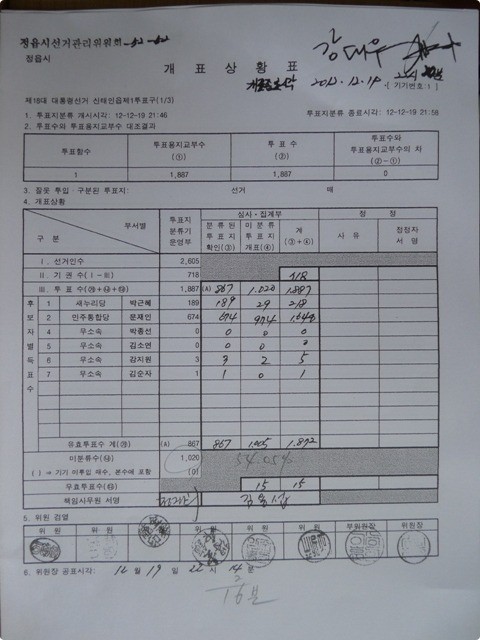 정읍시선거관리위원회
정읍시
개 표 상 황 표
2012. 12. 19
[ 기기번호:1 ]
제18대 대통령선거 신태인읍제1투표구(1/3)
1. 투표지분류 개시시각: 12-12-19 21:46 투표지분류 종료시각: 12-12-19 21:58
2. 투표수와 투표용지교부수 대조결과
투표함수 투표용지교부수 (①) 투표수 (②) 투표수와 투표용지교부수의 차 (②-①)
1 1,887 1,887 0
3. 잘못 투입·구분된 투표지: 선거 매
4. 개표상황
구 분 부서별 투표지분류기운영부 심사·집계부 정 정
분류된 투표지 확인(③) 미분류 투표지 개표(④) 계 (③+④) 사 유 정정자 서 명
Ⅰ. 선거인수 2,605
Ⅱ. 기 권 수 (Ⅰ-Ⅲ) 718 718
Ⅲ. 투 표 수 1,887 (A) 867 1.020 1.887
후보자별득표수
1 새누리당 박근혜 189 189 29 218
2 민주통합당 문재인 674 674 974 1.648
4 무소속 박종선 0 0 0 0
5 무소속 김소연 0 0 0
6 무소속 강지원 3 3 2 5
7 무소속 김순자 1 1 0 1
유효투표수 계(㉮) (A) 867 867 1.005 1.872
미분류수 1,020 54.05%
( ) = 기기 미투입 매수, 본수에 포함 (0)
무효투표수 15 15
책임사무원 서명
5. 위원 검열
위 원 위 원 위 원 위 원 위 원 부위원장 위원장
6. 위원장 공표시각: 12 월 19 일 22 시 14 분